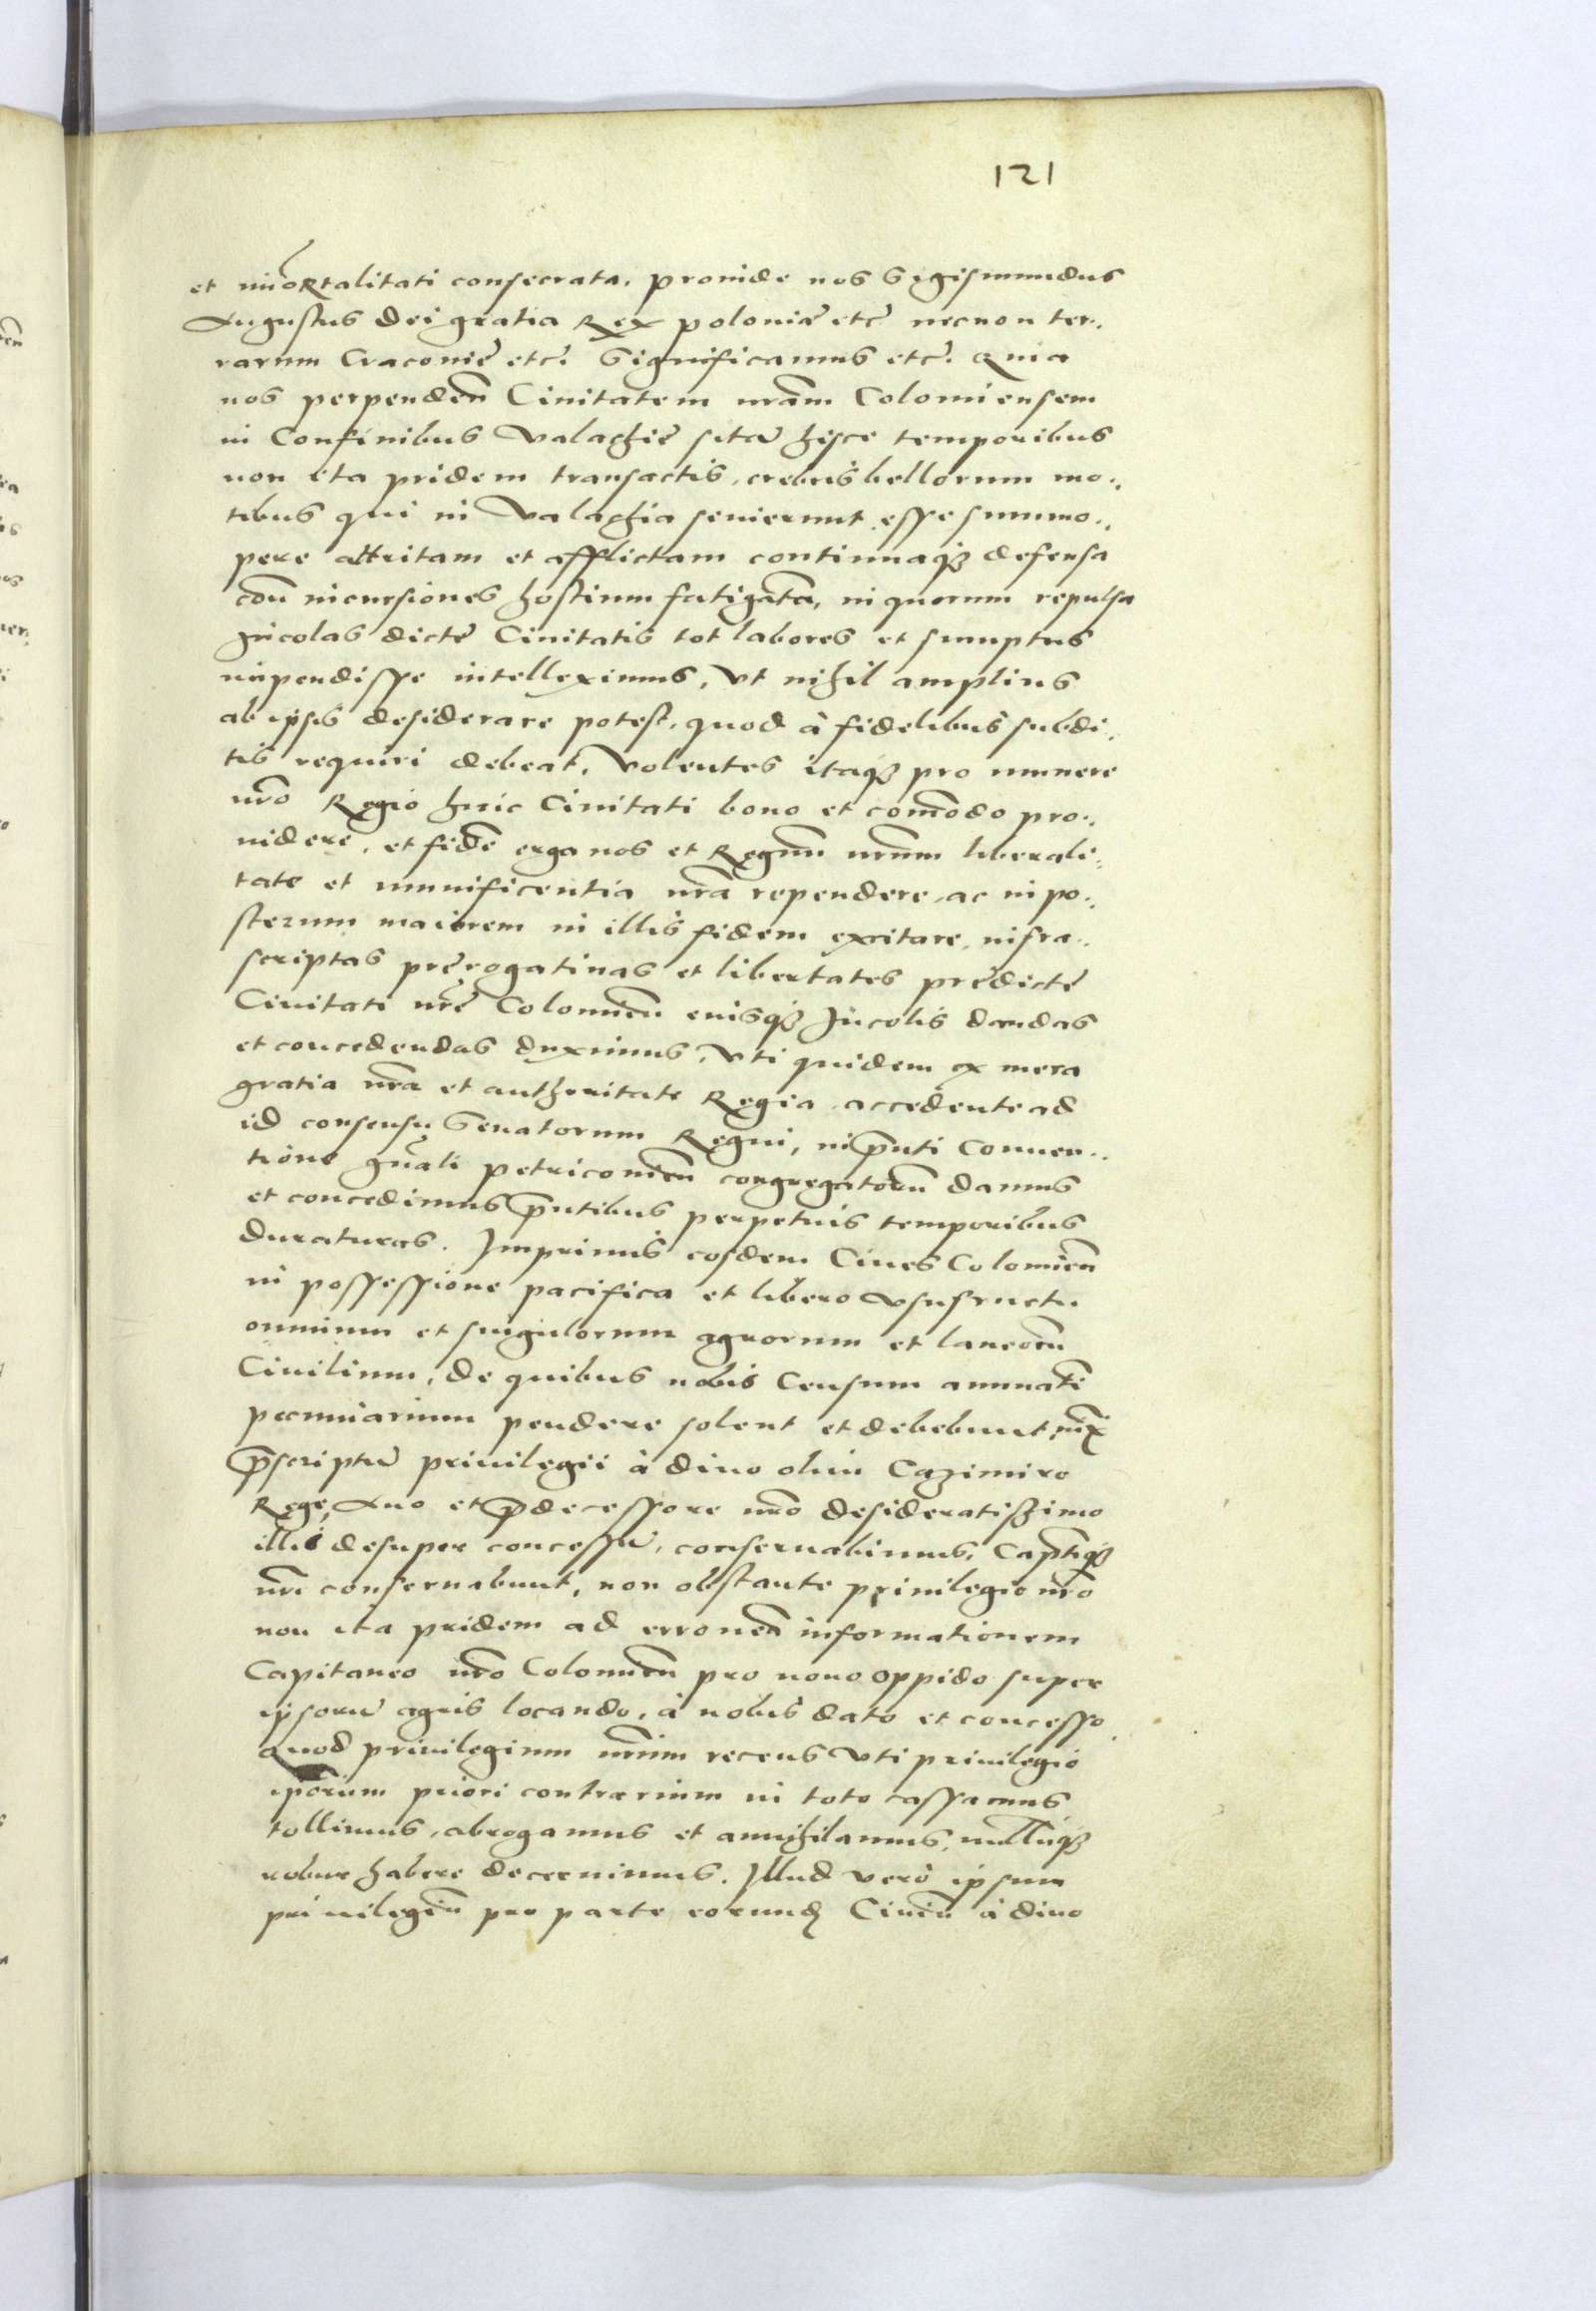 121
et im̃oRtalitati consecrata. Proinde nos Sigismundus
Augustus Dei gratia Rex Polonie etc̃ necnon ter.,
rarum Cracovie etc̃. Significamus etc̃. Quia
nos perpendeñ Civitatem nr̃am Colomiensem
in Confinibus Valachie sitã hisce temporibus
non ita pridem transactis, crebris bellorum mo.,
tibus qui in Valachia sevierunt esse summo.,
pere attritam et afflictam continuaqȝ defensa
cõtr̃ incursiones hostium fatigatã, in quorum repulsa
Incolas dicte Civitatis tot labores et sumptus
impendisse intelleximus, ut nihil amplius
ab ipsis desiderare potest, quod à fidelibus subdi.,
tis requiri debeat. Volentes itaqȝ pro munere
nr̃o Regio huic Civitati bono et com̃odo pro.,
videre, et fidẽ erga nos et Regnũ nr̃um liberali.,
tate et munificentia nr̃a rependere, ac in po.,
sterum maiorem in illis fidem excitare, infra.,
scriptas prerogativas et libertates predicte
Civitati nr̃e Colomieñ eiusqȝ Incolis dandas
et concedendas duximus, Uti quidem ex mera
gratia nr̃a et authoritate Regia accedente ad
id consensu Senatorum Regni, in p̃nti Conven.,
tione gñali Petricovieñ congregatorũ damus
et concedimus p̃ntibus perpetuis temporibus
duraturas. Imprimis eosdem Cives Colomieñ
in possessione pacifica et libero usufructu
omnium et singulorum agrorum et laneorũ
Civilium, de quibus nobis Censum annuatĩ
pecuniarium pendere solent et debebunt, iux̃
p̃scriptũ privilegii à divo olim Cazimiro
Rege, Avo et p̃decessore nr̃o desideratissimo
illis desuper concessũ, conservabimus, Captiqȝ
nr̃i conservabunt, non obstante privilegio nr̃o
non ita pridem ad erroneã informationem
Capitaneo nr̃o Colomieñ pro novo oppido super
ipsorũ agris locando, à nobis dato et concesso
quod privilegium nr̃um recens uti privilegio
ipõrum priori contrarium in toto cassamus
tollimus, abrogamus et annihilamus, nullũqȝ
robur habere decernimus. Illud verò ipsum
privilegiũ pro parte eorund Civiũ à divo